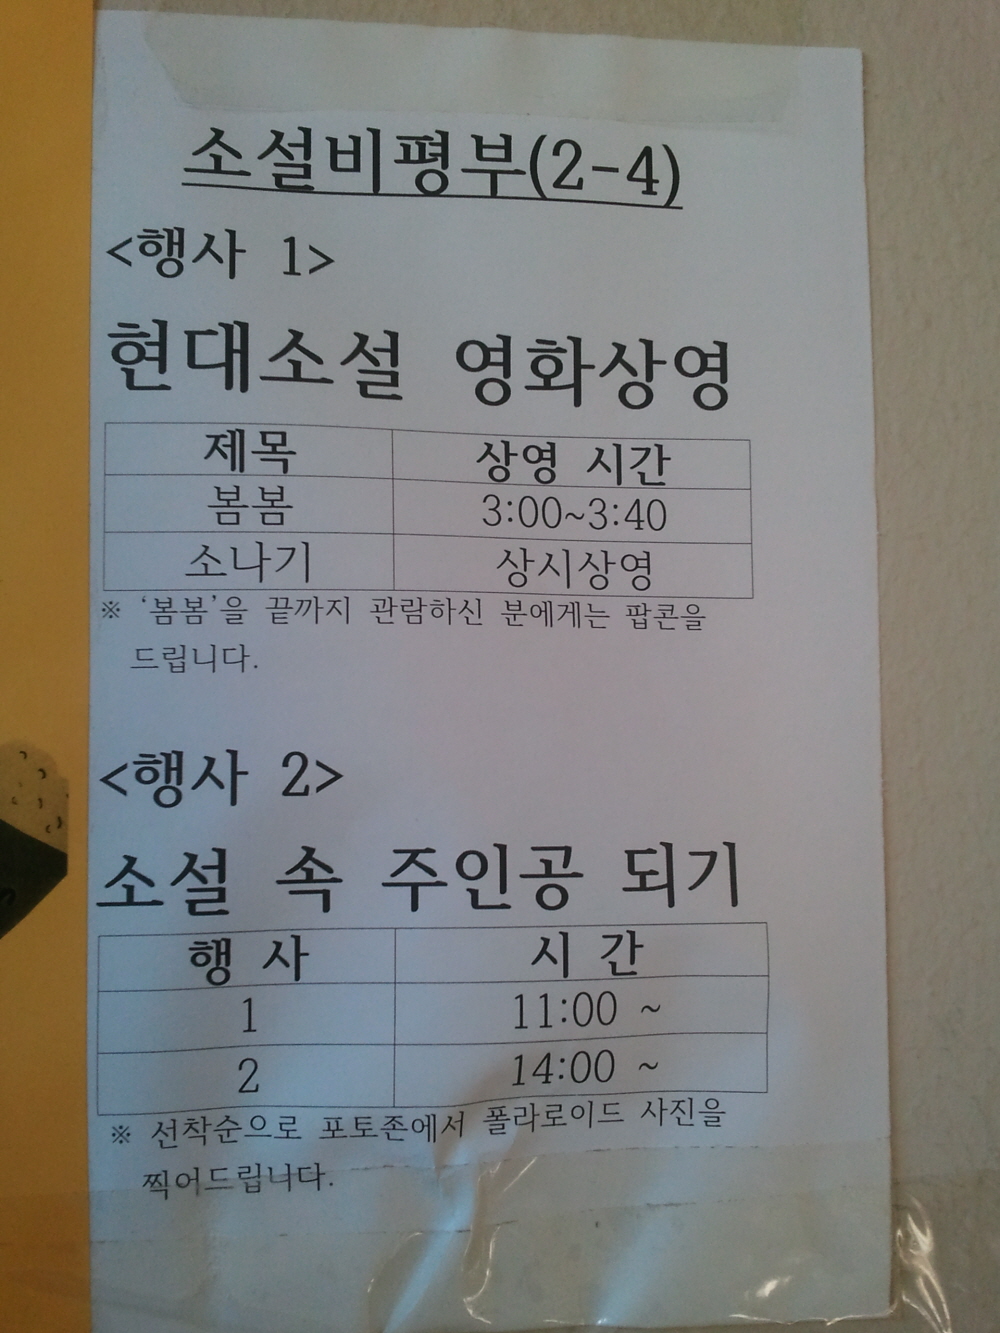 소설비평부(2-4)
<행사 1>
현대소설 영화상영
제목 상영 시간
봄봄 3:00~3:40
소나기 상시상영
※ '봄봄'을 끝까지 관람하신 분에게는 팝콘을
드립니다.
<행사 2>
소설 속 주인공 되기
행 사 시 간
1 11:00 ~
2 14:00 ~
※ 선착순으로 포토존에서 폴라로이드 사진을
찍어드립니다.